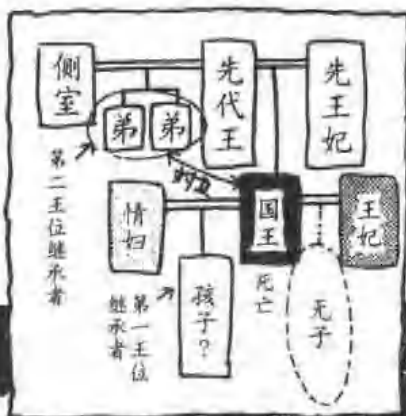 侧室
先代王
先王妃
弟
弟
第二王位继承者
对立
情妇
国王
王妃
孩子?
第一王位
继承者
死亡
无子